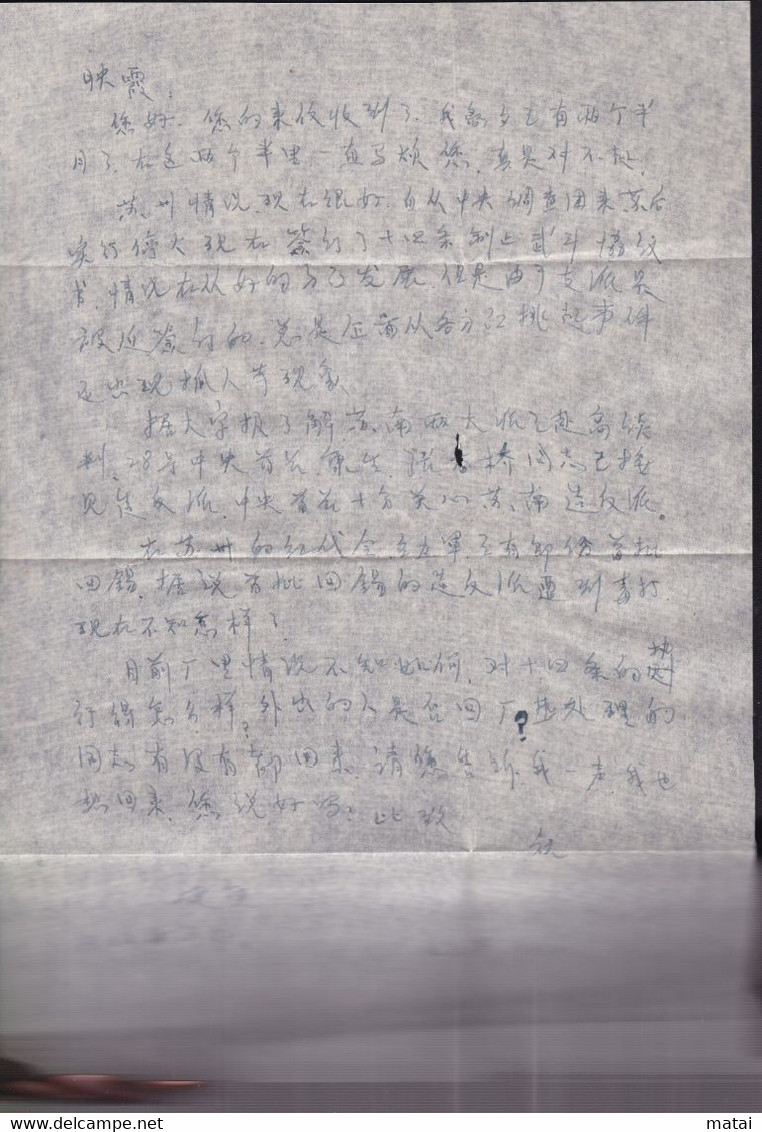 映霞:
您好. 您的来信收到了. 我离乡已有两个半
月了. 在这两个半里一直马烦您, 真是对不起.
苏州情况现在很好. 自从中央调查团来苏后
实行停火现在签订了十四条制止武斗协议
书, 情况在从好的方面发展, 但是由于支派是
被迫签订的. 总是从各方面挑起事件
还出现抓人等现象
据大字报了解苏南两大派已赴京谈
判. 28号中央首长, 康生, 同志已接
见造反派. 中央首长十分关心苏南造反派。
在苏州的红代会 有部份首批
回锡. 据说首批回锡的造反派遭到毒打.
现在不知怎样了.
目前厂里情况不知如何. 对十四条的执
行得怎么样? 外出的人是否回厂? 处理的
同志有没有都回来. 请您告诉我一声. 我也
想回来. 您说好吗? 此致
matai